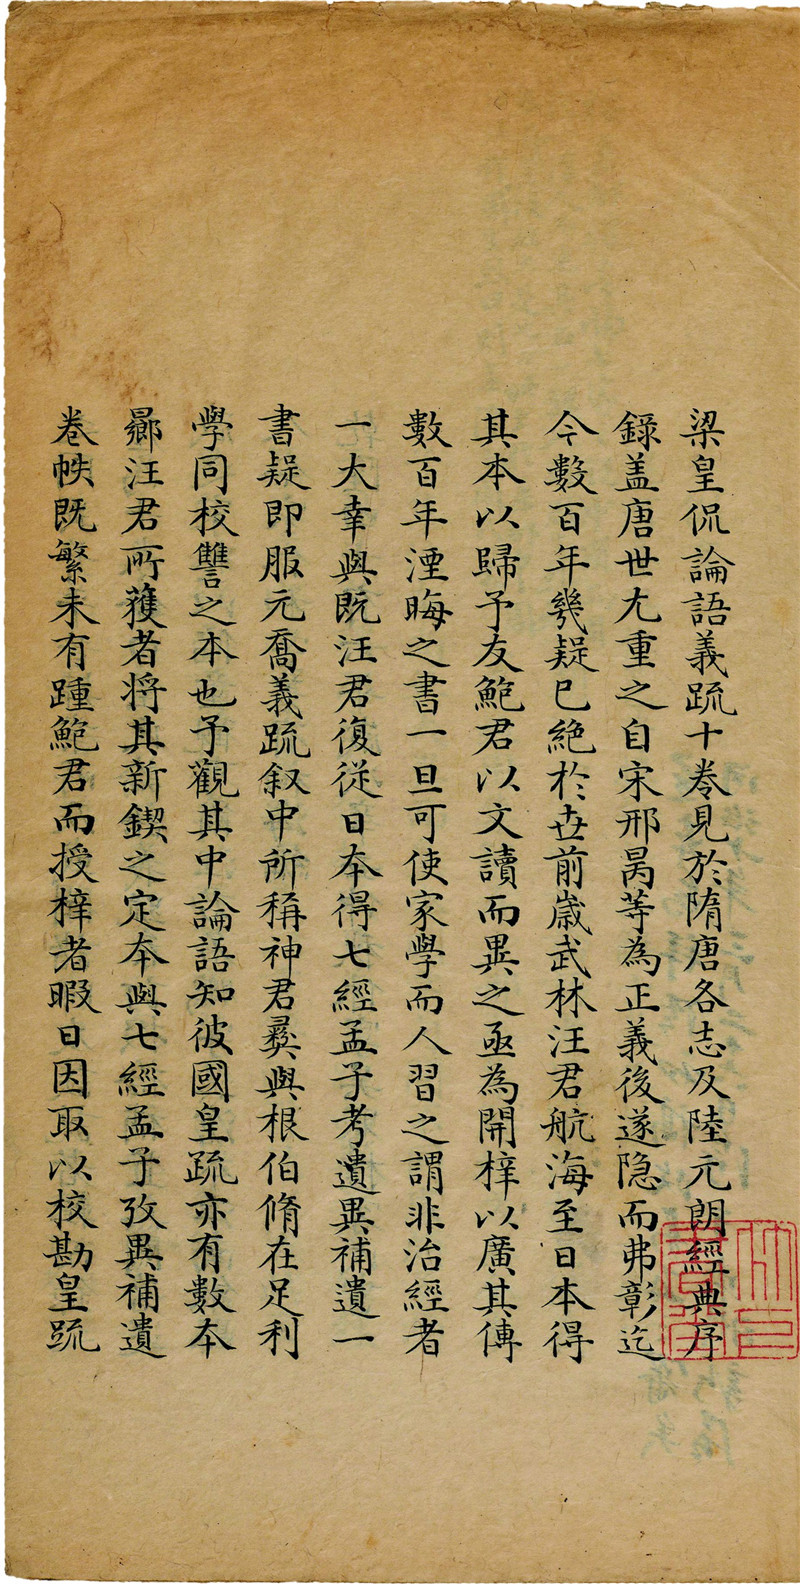 梁皇侃論語義疏十卷見於隋唐各志及陸元朗經典序
錄盖唐世尤重之自宋邢昺等為正義後遂隐而弗彰迄
今數百年幾疑已絕於世前歲武林汪君航海至日本得
其本以歸予友鮑君以文讀而異之亟為開梓以廣其傳
數百年湮晦之書一旦可使家學而人習之謂非治經者
一大幸與既汪君復從日本得七經孟子考遺異補遺一
書疑即服元喬義疏叙中所稱神君彞與根伯脩在足利
學同校讐之本也予觀其中論語知彼國皇疏亦有數本
鄉汪君所獲者將其新鍥之定本與七經孟子攷異補遺
卷帙既繁未有踵鮑君而授梓者暇日因取以校勘皇疏